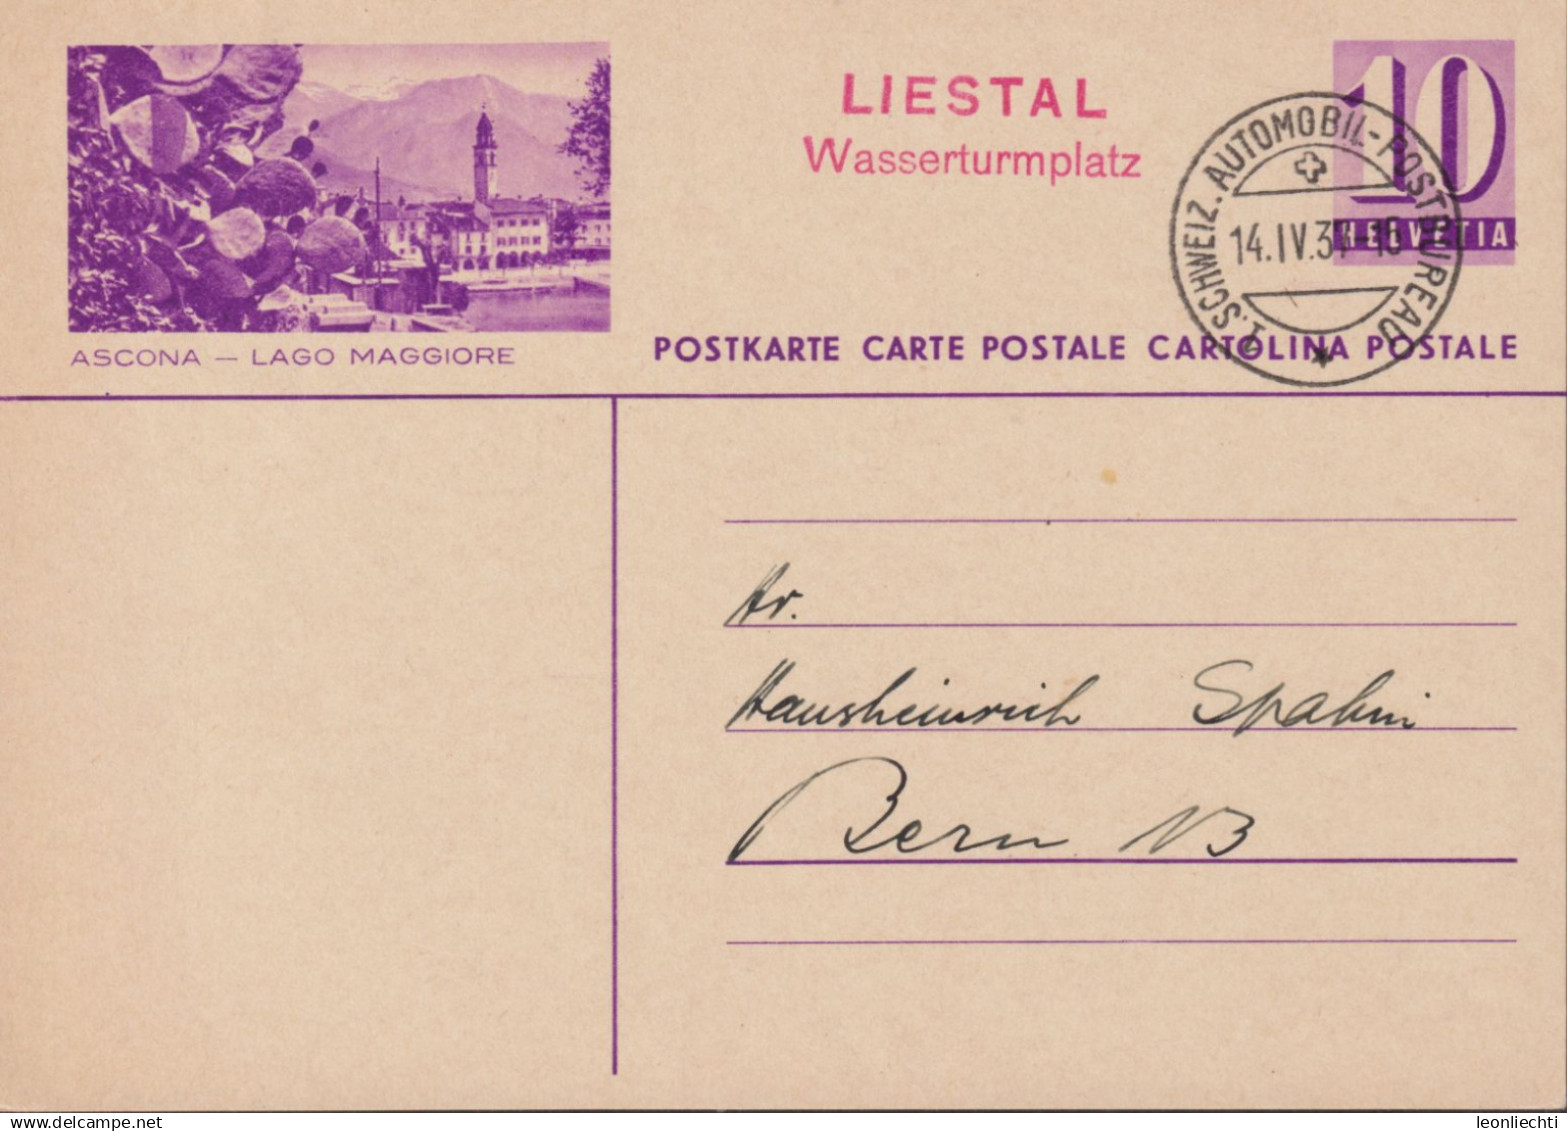 LIESTAL
Wasserturmplatz
10
HELVETIA
1. SCHWEIZ. AUTOMOBIL-POSTBUREAU
14.IV.37-16
ASCONA — LAGO MAGGIORE
POSTKARTE CARTE POSTALE CARTOLINA POSTALE
Hr.
Hausheinrich Spahni
Bern 13
leonliechti